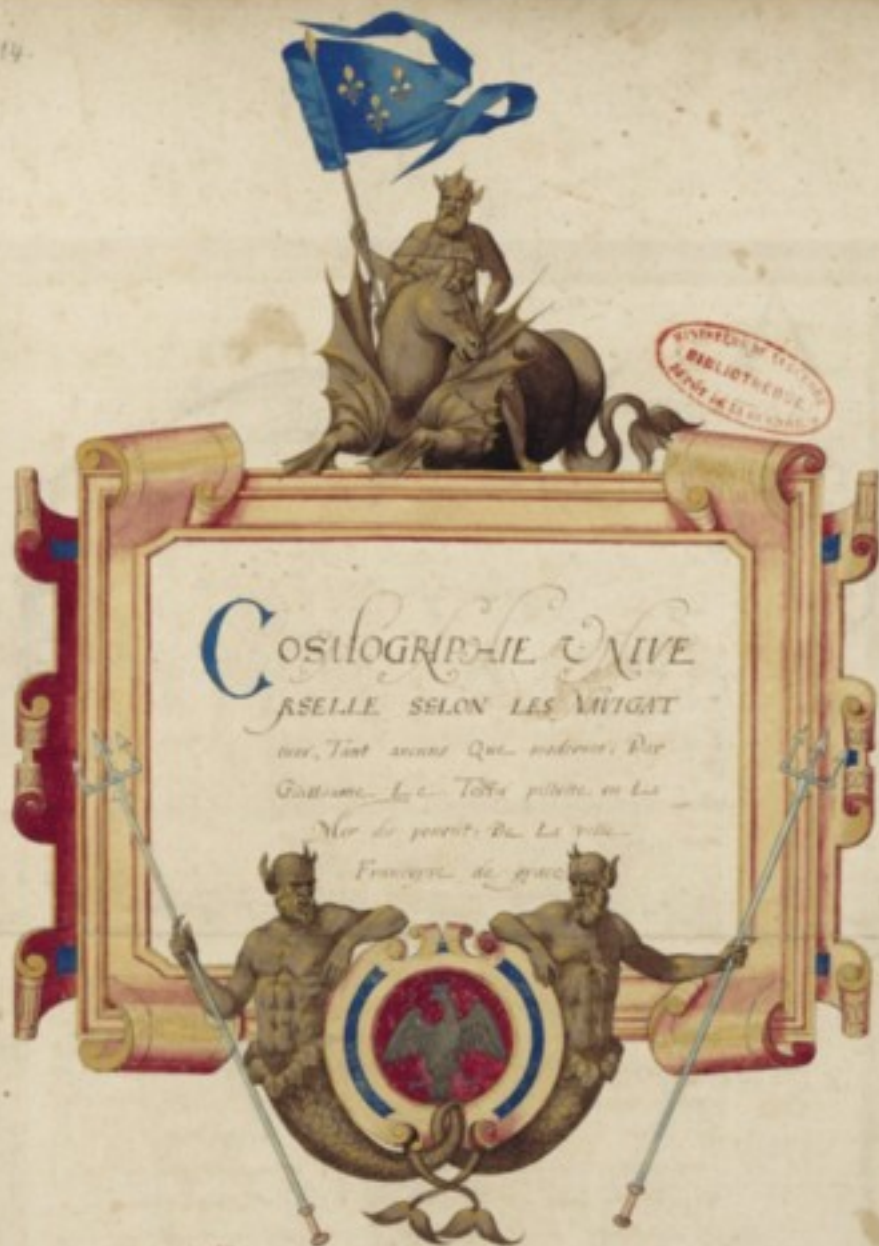 14.
BIBLIOTHEQUE
COSMOGRAPHIE UNIVE
RSELLE SELON LES NAVIGAT
eurs, Tant anciens Que modernes. Par
Guillaume Le Testu pillotte en La
Mer du ponent. De La ville
Francoyse de grace